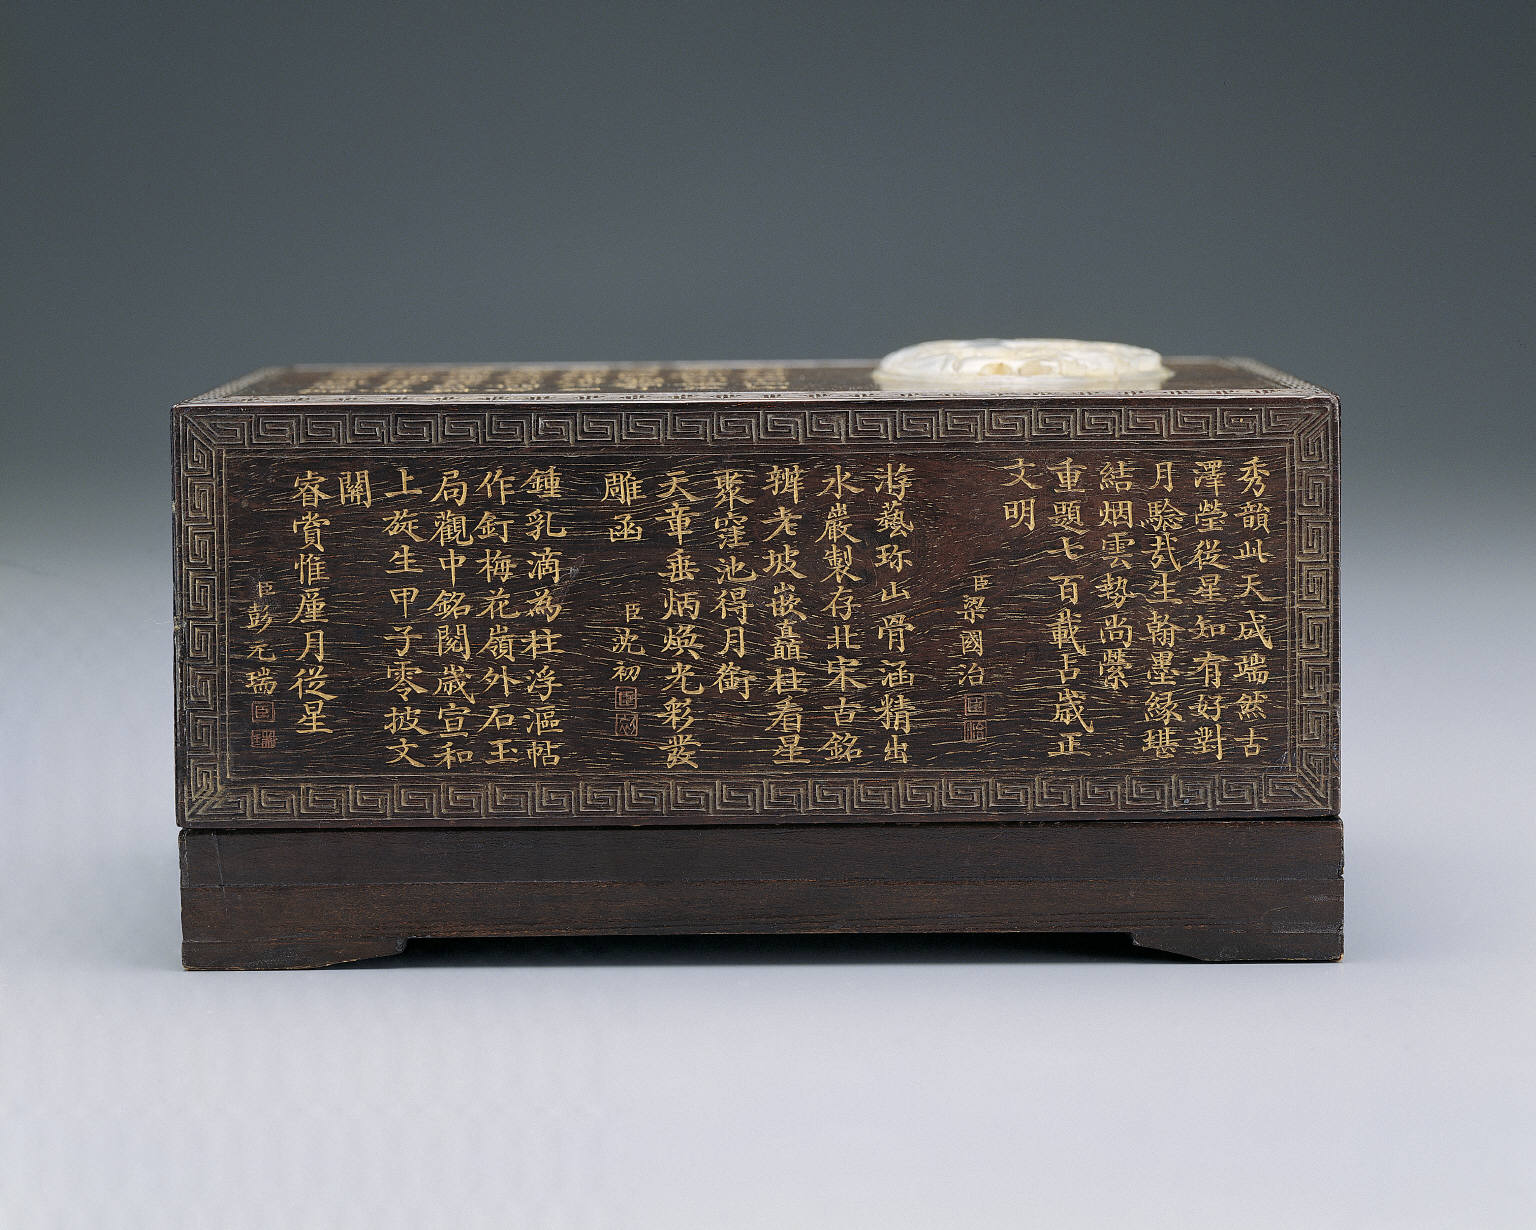 秀韻此天成端然古
澤瑩從星知有好對
月驗哉生翰墨緣堪
結烟雲勢尚縈
重題七百載吉歲正
文明
臣梁國治
游藝珎山骨涵精出
水巖製存北宋古銘
辨老坡嵌矗柱看星
聚窪池得月銜
天章垂炳煥光彩發
雕函
臣沈初
鍾乳滴為柱浮漚帖
作釘梅花嶺外石玉
局觀中銘閱歲宣和
上旋生甲子零披文
關
睿賞惟厪月從星
臣彭元瑞